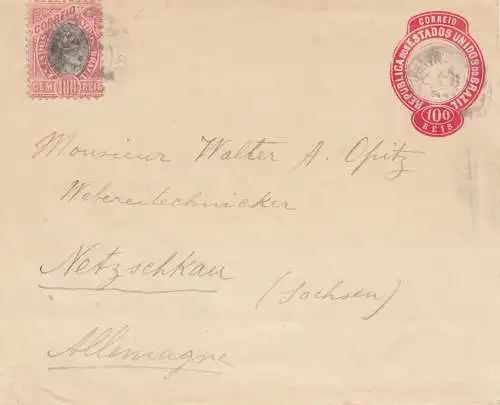 CORREIO
ESTADOS UNIDOS DO BRAZIL
CEM 100 REIS
CORREIO
REPUBLICA DOS ESTADOS UNIDOS DO BRAZIL
100
REIS
Monsieur Walter A. Opitz
Webereitechnicker
Netzschkau
(Sachsen)
Allemagne